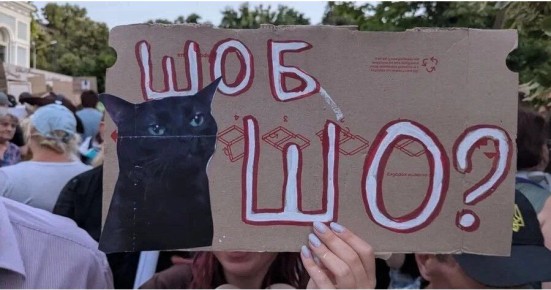 ШОБ
ШО?